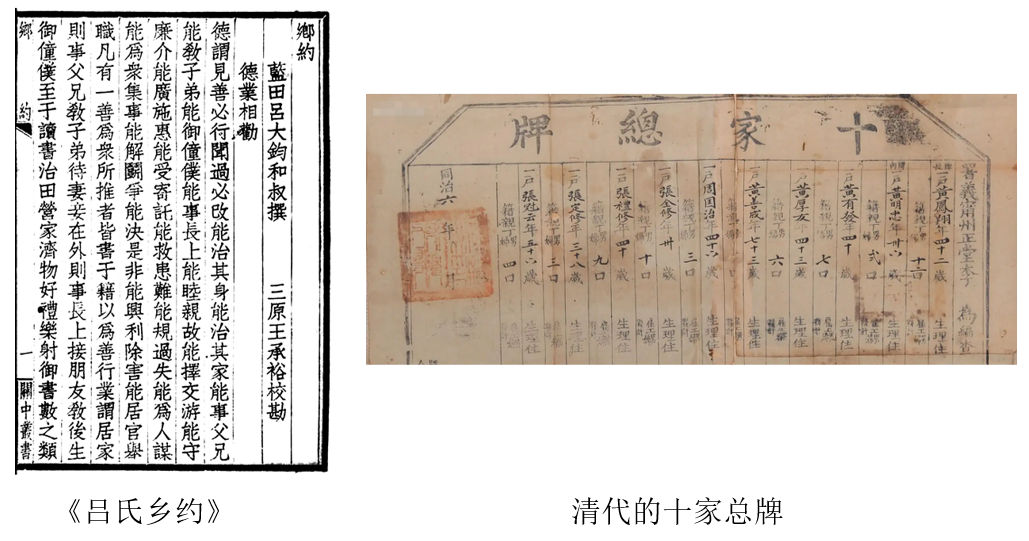 鄉約
藍田呂大鈞和叔撰　三原王承裕校勘
德業相勸
德謂見善必行聞過必改能治其身能治其家能事父兄
能教子弟能御僮僕能事長上能睦親故能擇交游能守
廉介能廣施惠能受寄託能救患難能規過失能為人謀
能為眾集事能解鬭爭能決是非能興利除害能居官舉
職凡有一善為眾所推者皆書于籍以為善行業謂居家
則事父兄教子弟待妻妾在外則事長上接朋友教後生
御僮僕至于讀書治田營家濟物好禮樂射御書數之類
鄉約　一　關中叢書
十家總牌
署義甯州正堂李　為編查
一戶黃鳳翔年四十二歲　生理住
一戶黃明忠年卅六歲　生理住
一戶黃有發年四十歲　生理住
一戶黃厚友年四十三歲　生理住
一戶黃善成年七十三歲　生理住
一戶周國治年四十六歲　生理住
一戶張全修年卅歲　生理住
一戶張禮修年四十歲　生理住
一戶張定修年三十八歲　生理住
一戶張冠云年五十六歲　生理住
同治六年　月
《吕氏乡约》
清代的十家总牌